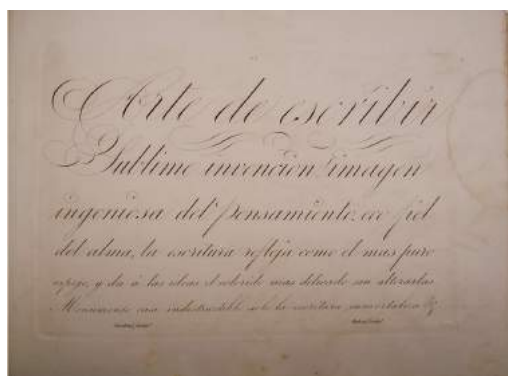 Arte de escribir
Sublime invencion! imagen
ingeniosa del pensamiento, eco fiel
del alma, la escritura refleja como el mas puro
espejo, y da á las ideas el colorido mas delicado sin alterarlas
Monumento casi indestructible solo la escritura